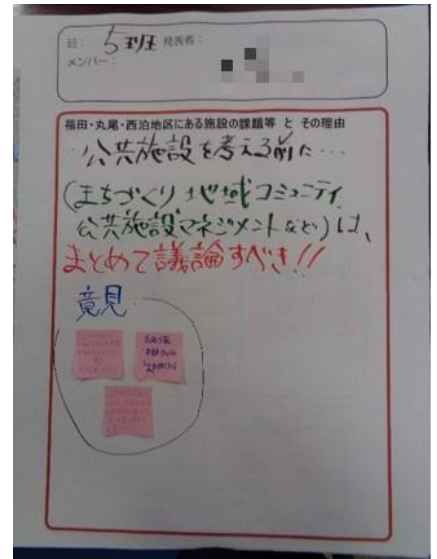 班: 5班 発表者:
メンバー:
福田・丸尾・西泊地区にある施設の課題等 と その理由
公共施設を考える前に…
(まちづくり 地域コミュニティ
公共施設マネジメントなど)は、
まとめて議論すべき!!
意見